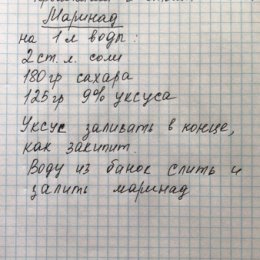 Маринад
на 1 л водр:
2 ст. л. соли
180 гр сахара
125 гр 9% уксуса
Уксус заливать в конце,
как закипит.
Воду из банок слить и
залить маринад